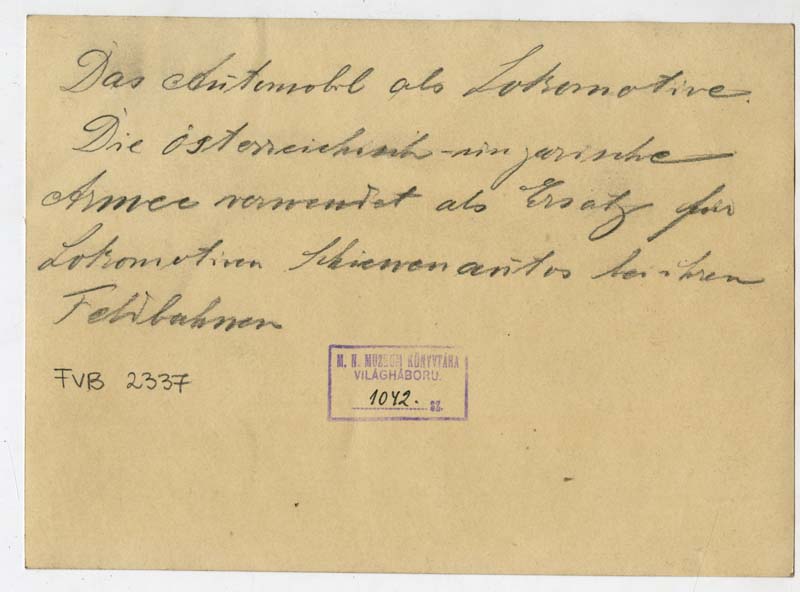 Das Automobil als Lokomotive.
Die österreichisch-ungarische
Armee verwendet als Ersatz für
Lokomotiven Schienenautos bei ihren
Feldbahnen
FVB 2337
M. N. MUZEUM KÖNYVTÁRA
VILÁGHÁBORU.
1042. sz.